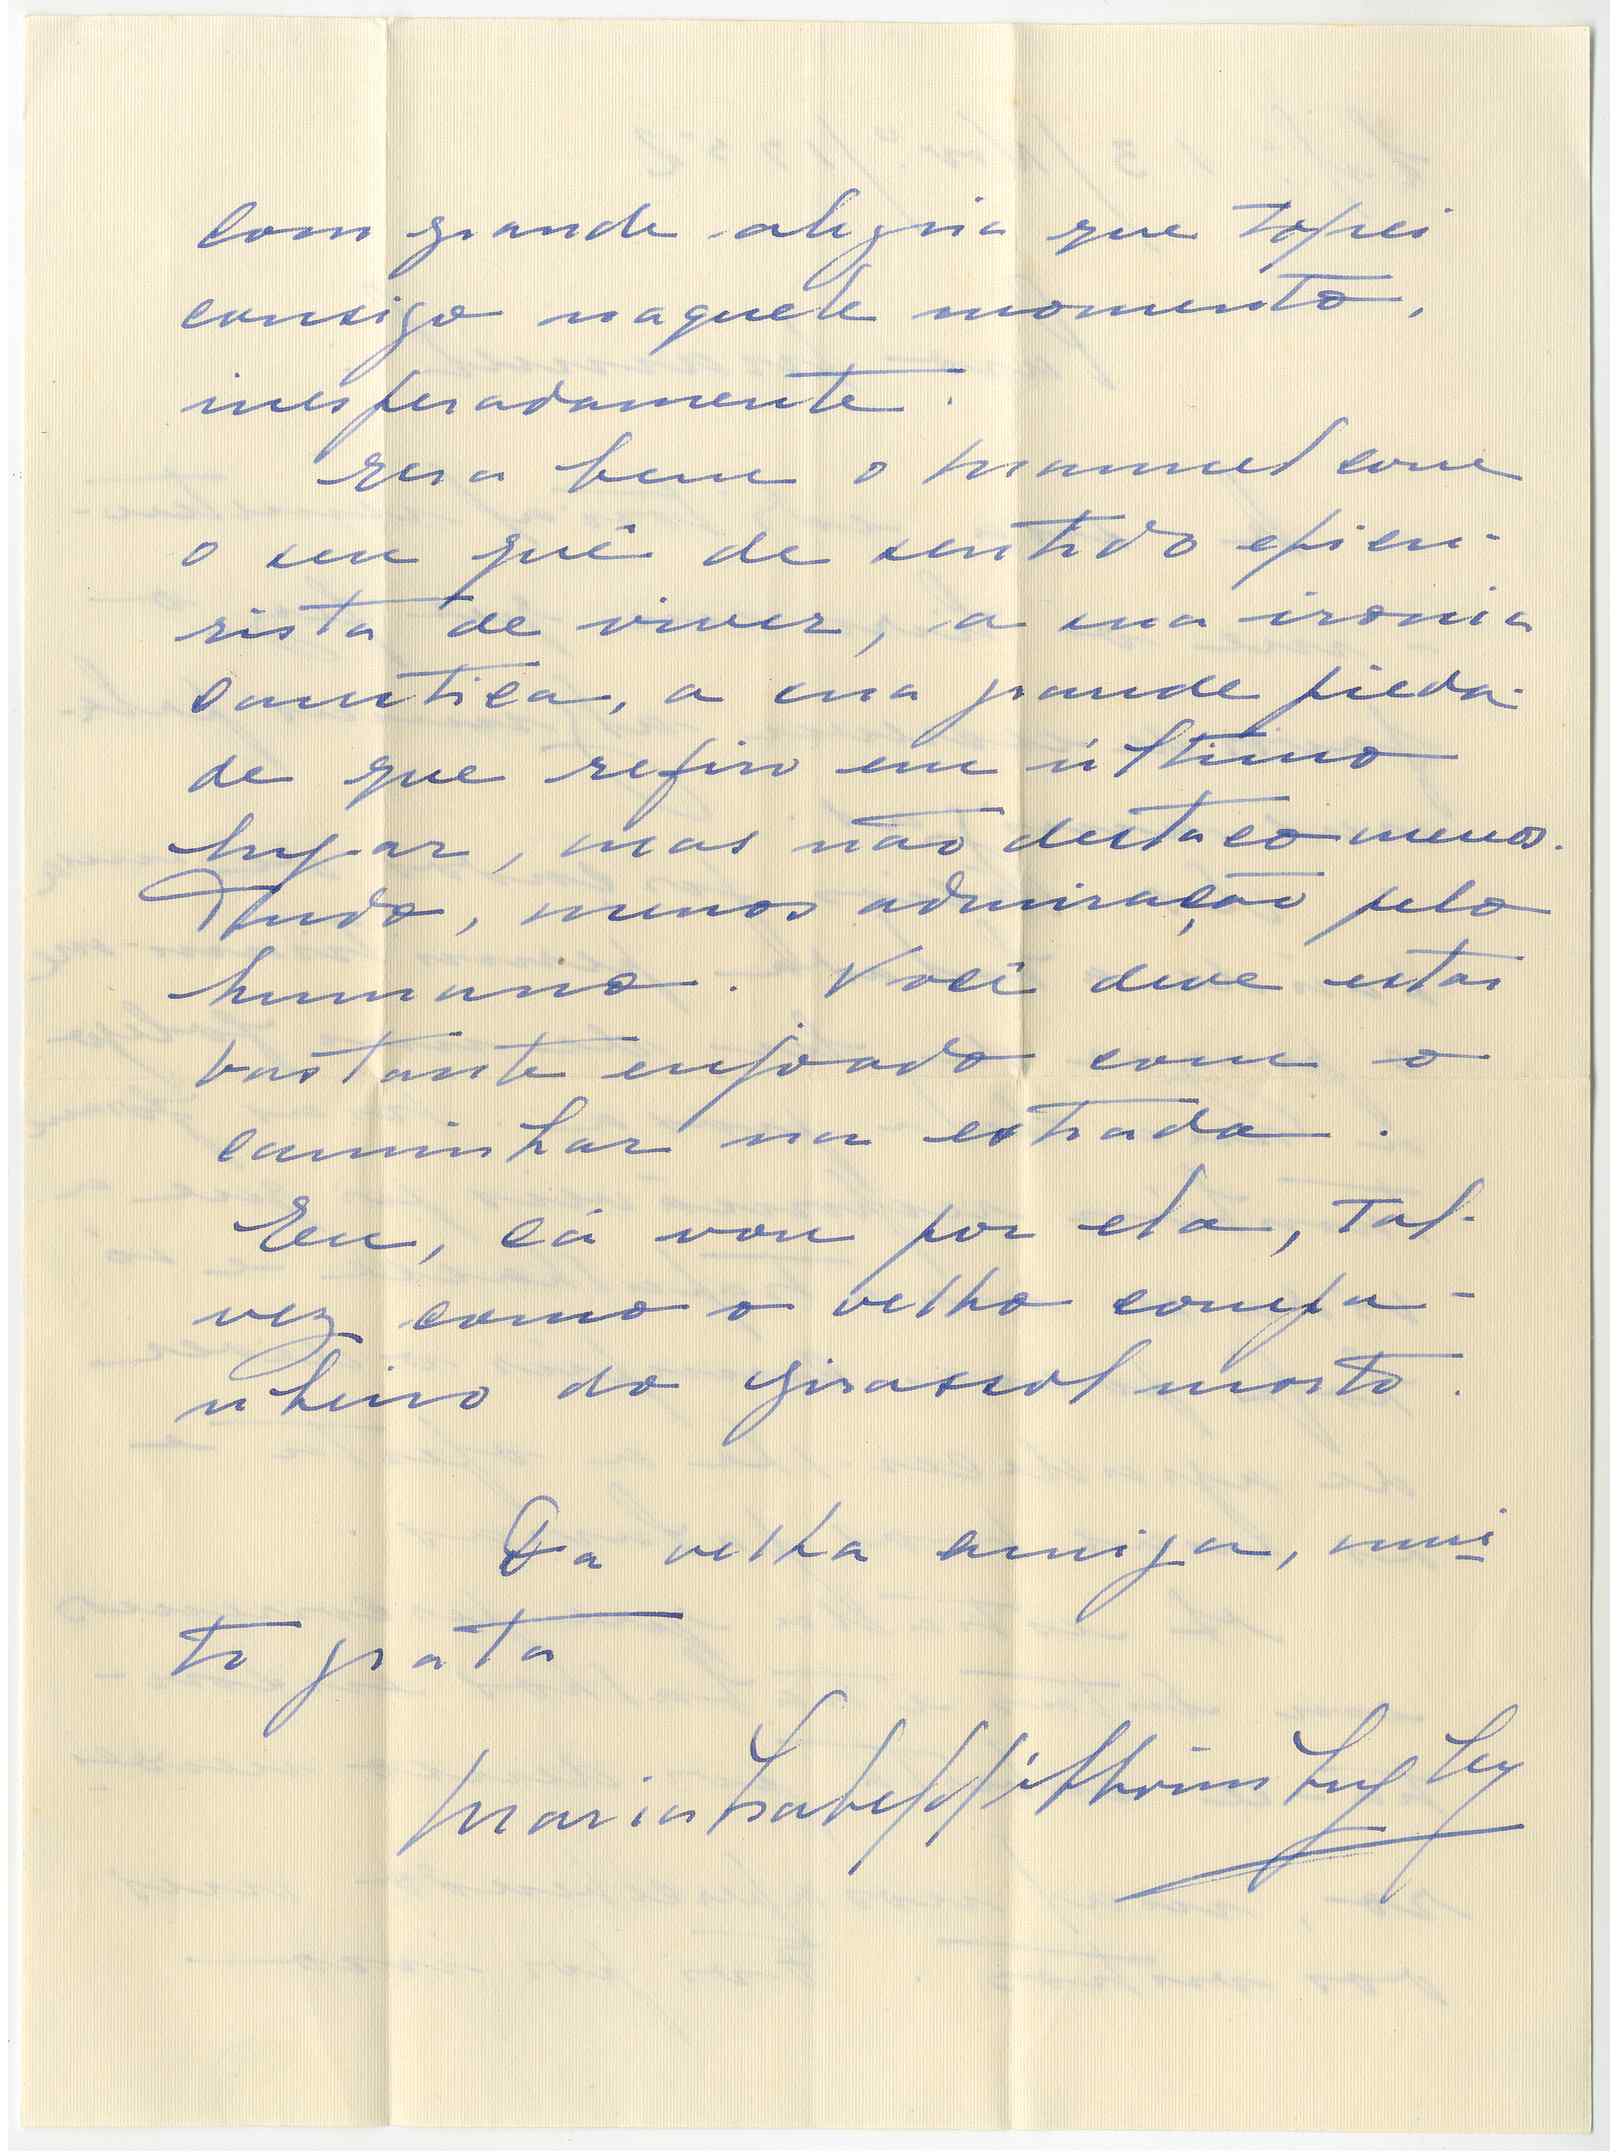 com grande alegria que topei
consigo naquele momento,
inesperadamente.
Era bem o Manuel com
o seu quê de sentido epicu-
rista de viver, a sua ironia
caustica, a sua grande pieda-
de que refiro em último
lugar, mas não destaco menos.
Tudo, menos admiração pelo
humano. Você deve estar
bastante enjoado com o
caminhar na estrada.
Eu, cá vou por ela, tal-
vez como o velho compa-
nheiro do girassol morto.
Da velha amiga, mui
to grata
Maria Isabel